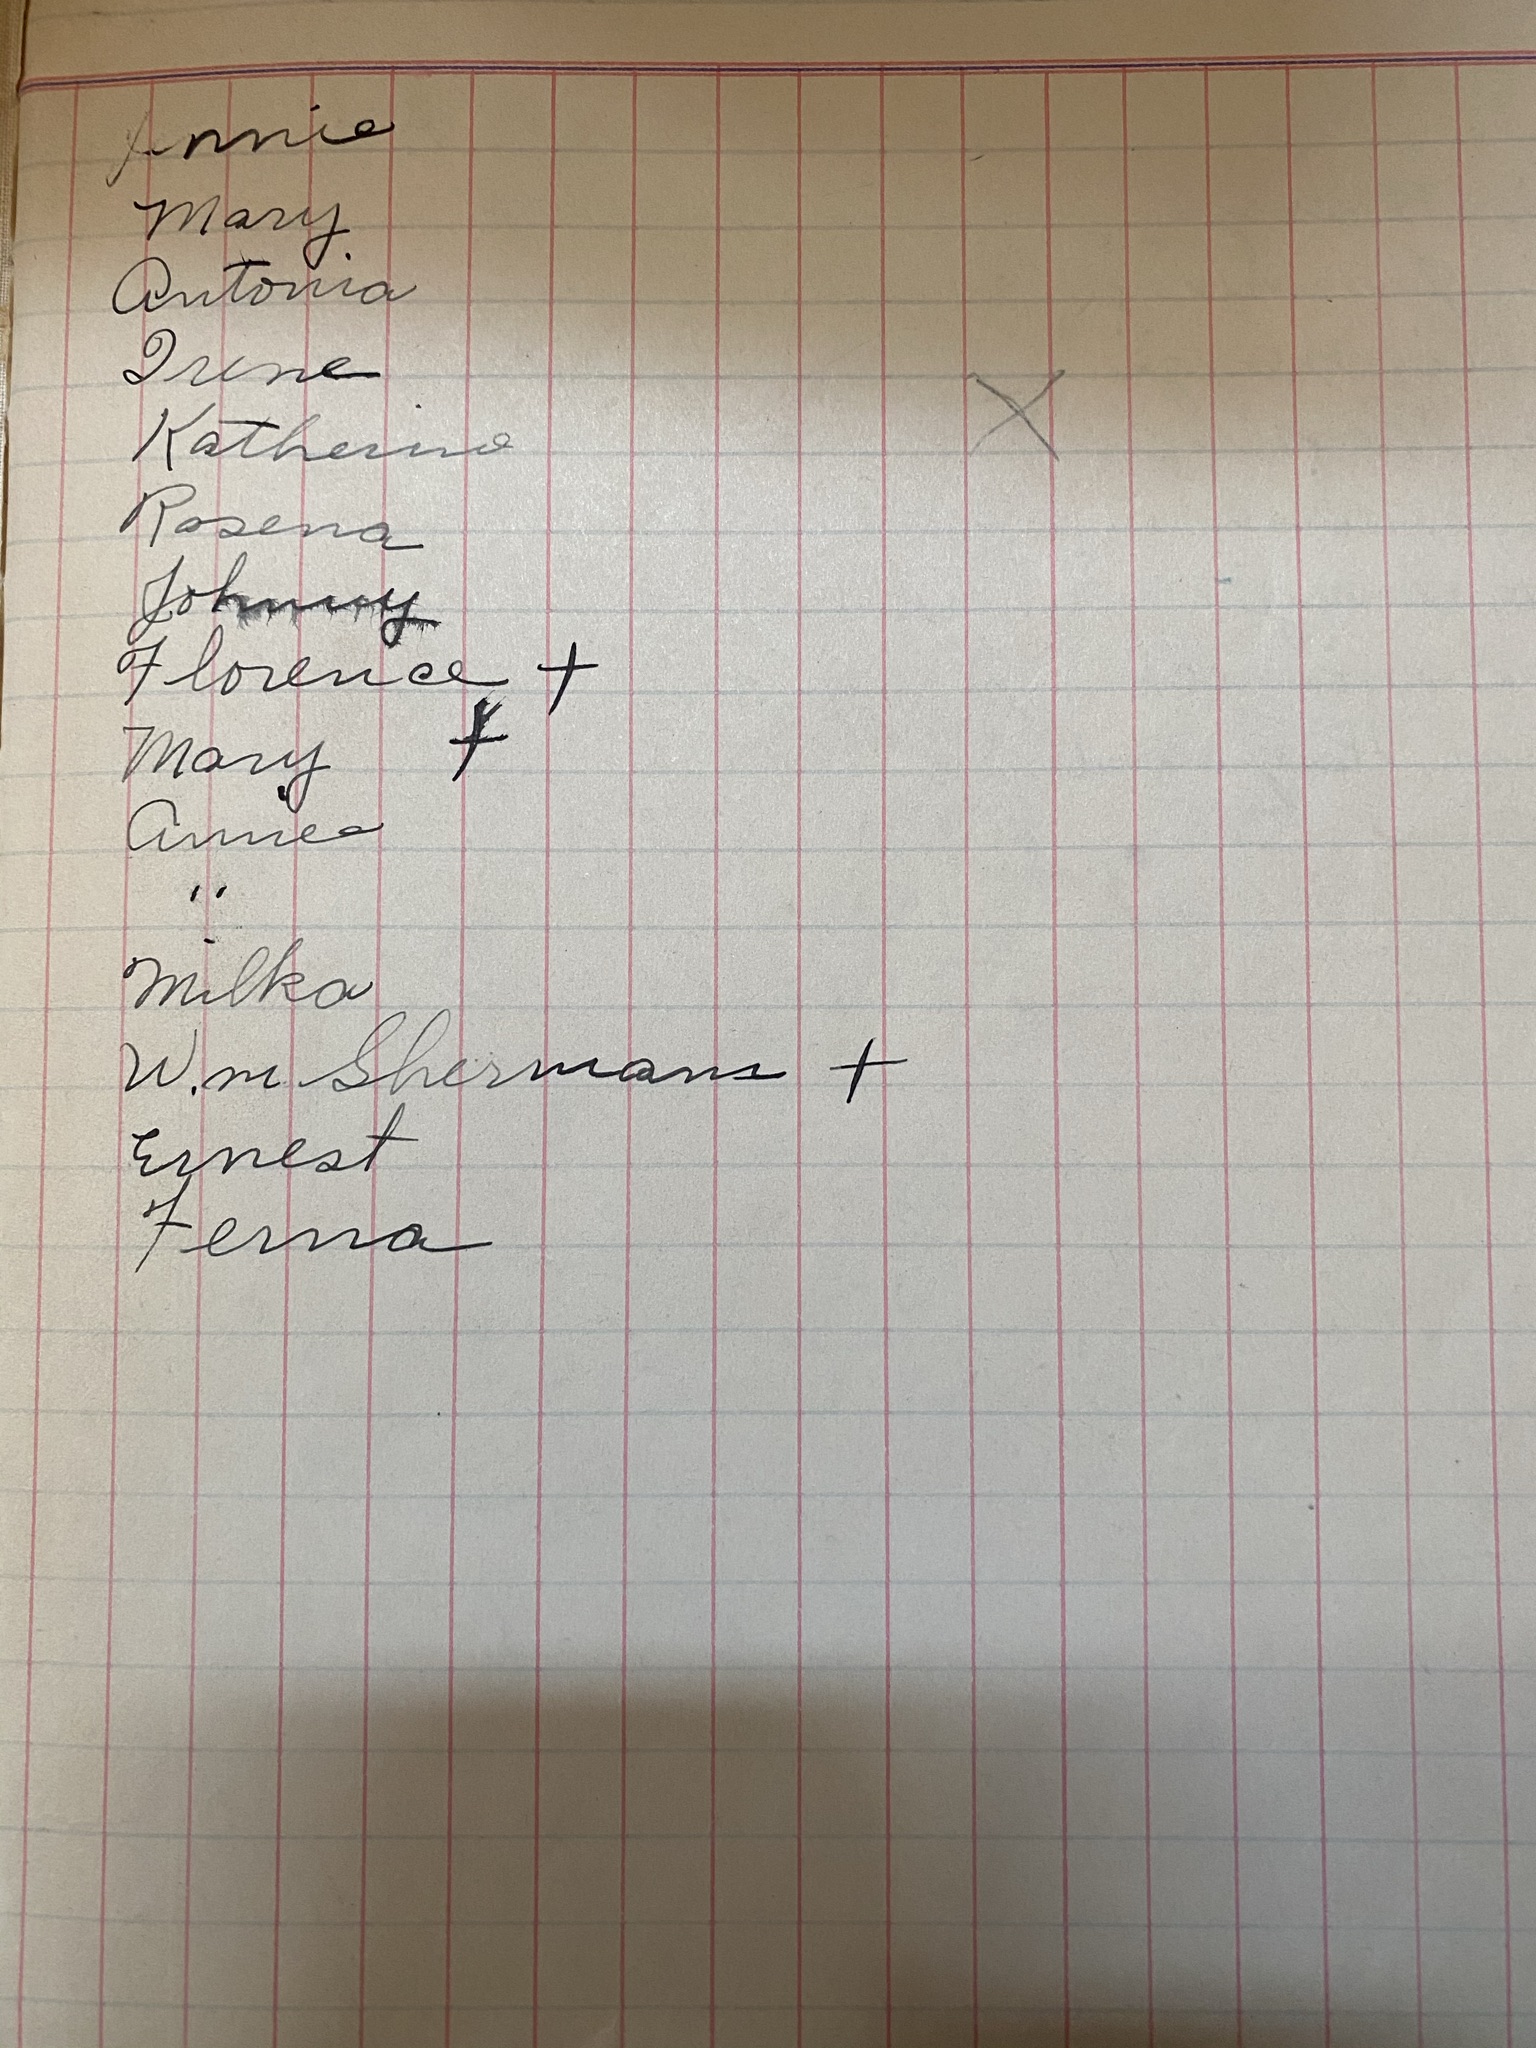 Annie
Mary
Antonia
Irene
Katherine
X
Rosena
Johnny
Florence +
Mary +
Annie
"
Milka
W.m Shermans +
Ernest
Ferna